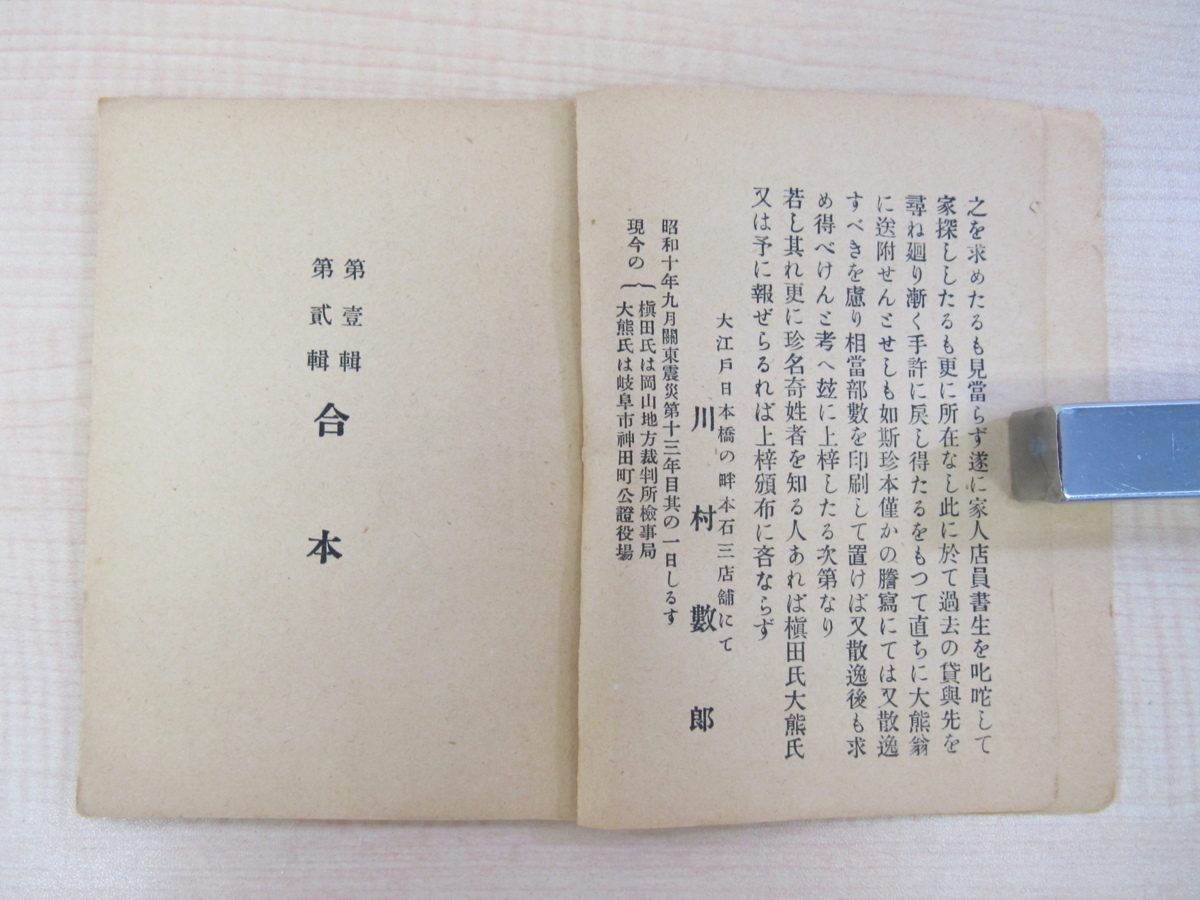 之を求めたるも見當らず遂に家人店員書生を叱咤して
家探ししたるも更に所在なし此に於て過去の貸與先を
尋ね廻り漸く手許に戾し得たるをもつて直ちに大熊翁
に送附せんとせしも如斯珍本僅かの謄寫にては又散逸
すべきを慮り相當部數を印刷して置けば又散逸後も求
め得べけんと考へ玆に上梓したる次第なり
若し其れ更に珍名奇姓者を知る人あれば槇田氏大熊氏
又は予に報ぜらるれば上梓頒布に吝ならず
大江戶日本橋の畔本石三店舖にて
川村數郎
昭和十年九月關東震災第十三年目其の一日しるす
現今の
槇田氏は岡山地方裁判所檢事局
大熊氏は岐阜市神田町公證役場
第壹輯
第貳輯
合本